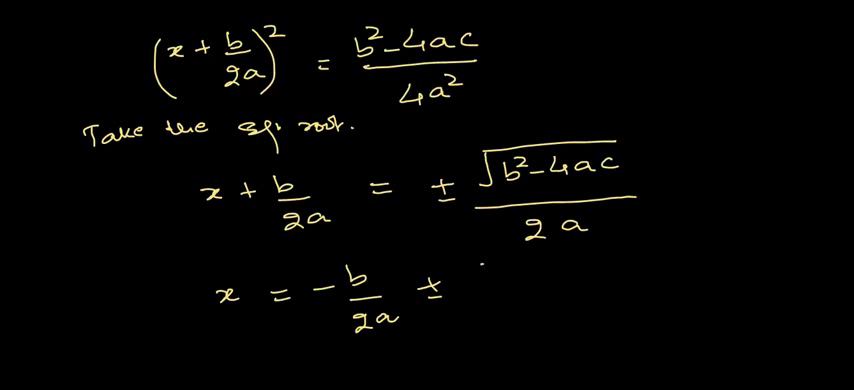 (x + b/2a)² = b² - 4ac / 4a²
Take the sq. root.
x + b/2a = ± √b² - 4ac / 2a
x = - b/2a ±